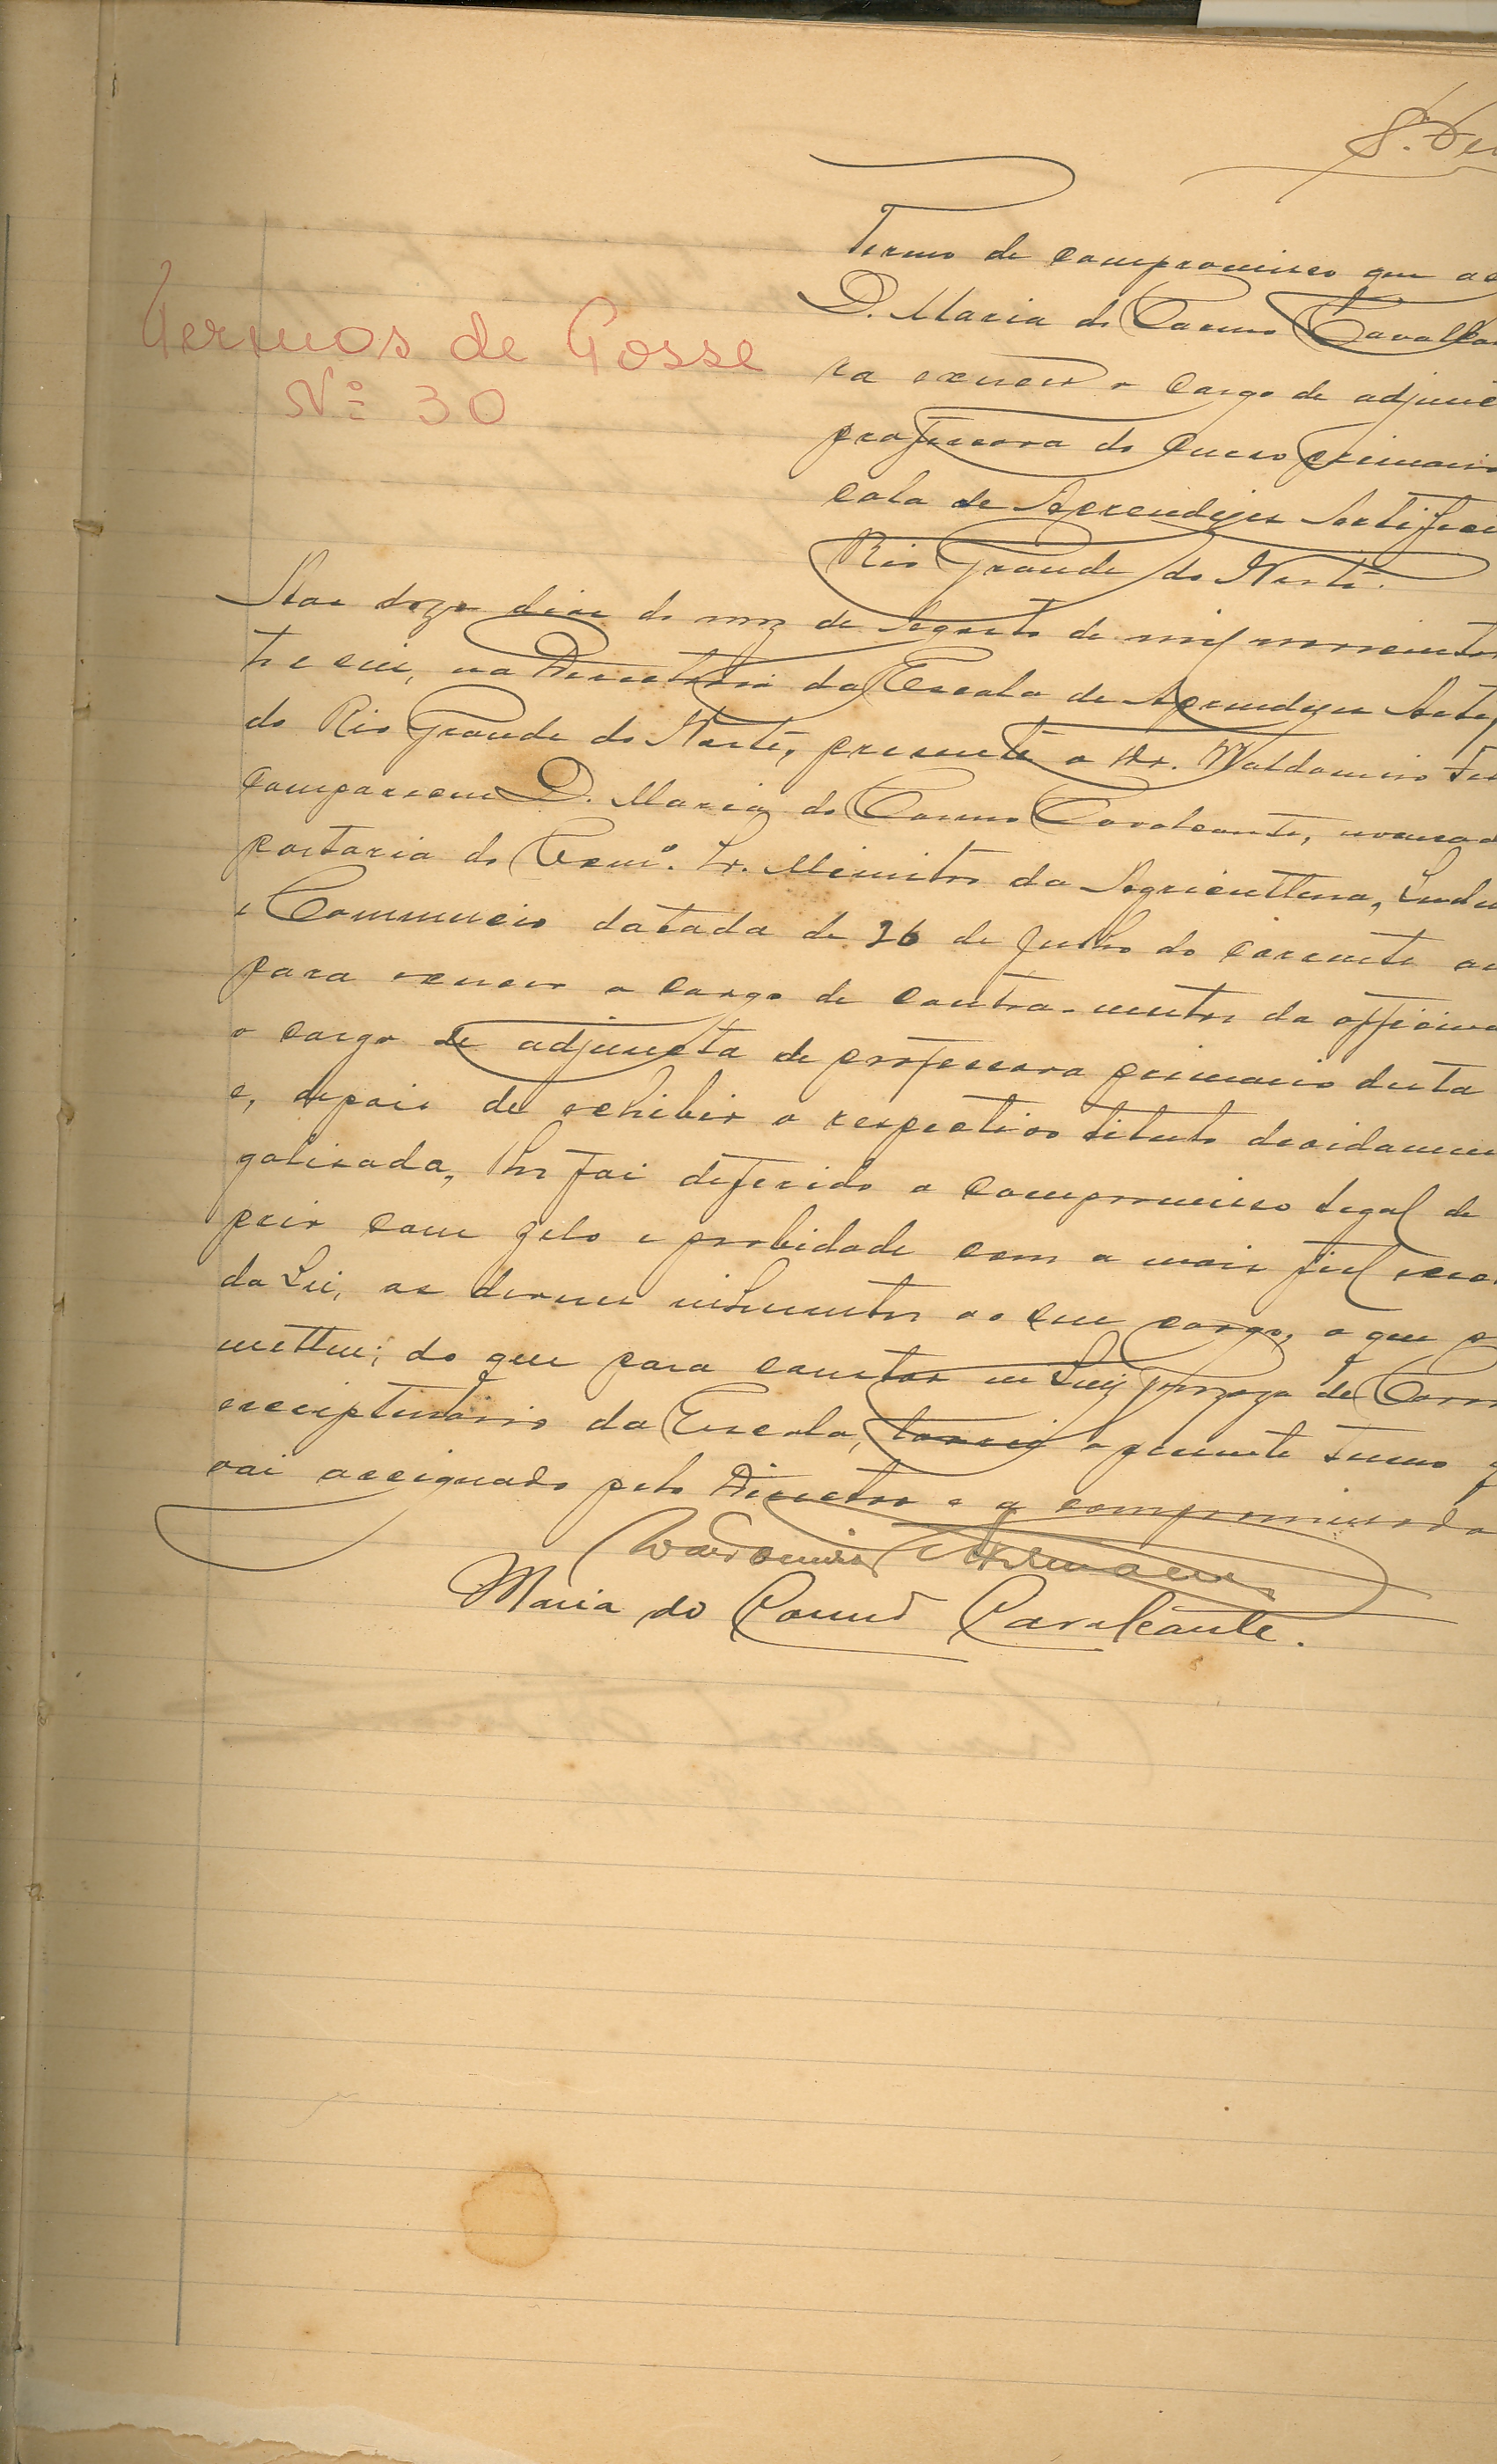 Termos de Posse
Nº 30
Termo de compromisso que
D. Maria do Carmo Cavalcan
ra exercer o cargo de adjunc
professora do curso primario
cola de Aprendizes Artifices
Rio Grande do Norte.
Aos doze dias do mez de Agosto de mil novecentos
te e seis, na Directoria da Escola de Aprendizes Artif
do Rio Grande do Norte, presente o Dr. Waldomiro
compareceu D. Maria do Carmo Cavalcante, nomead
portaria do Exmº. Sr. Ministro da Agricultura, Indu
e Commercio datada de 26 de Julho do corrente an
para exercer o cargo de contra-mestre da officina
o cargo de adjuncta de professora primario desta
e, depois de exhibir o respectivo titulo devidamen
galisada, lhe foi deferido o compromisso legal de
prir com zelo e probidade com a mais fiel
da Lei, os deveres inherentes ao seu cargo, o que p
metteu; do que para constar eu Luiz Gonzaga de
escripturario da Escola, lavrei o presente termo q
vai assignado pelo Director e a compromissada
Maria do Carmo Cavalcante.